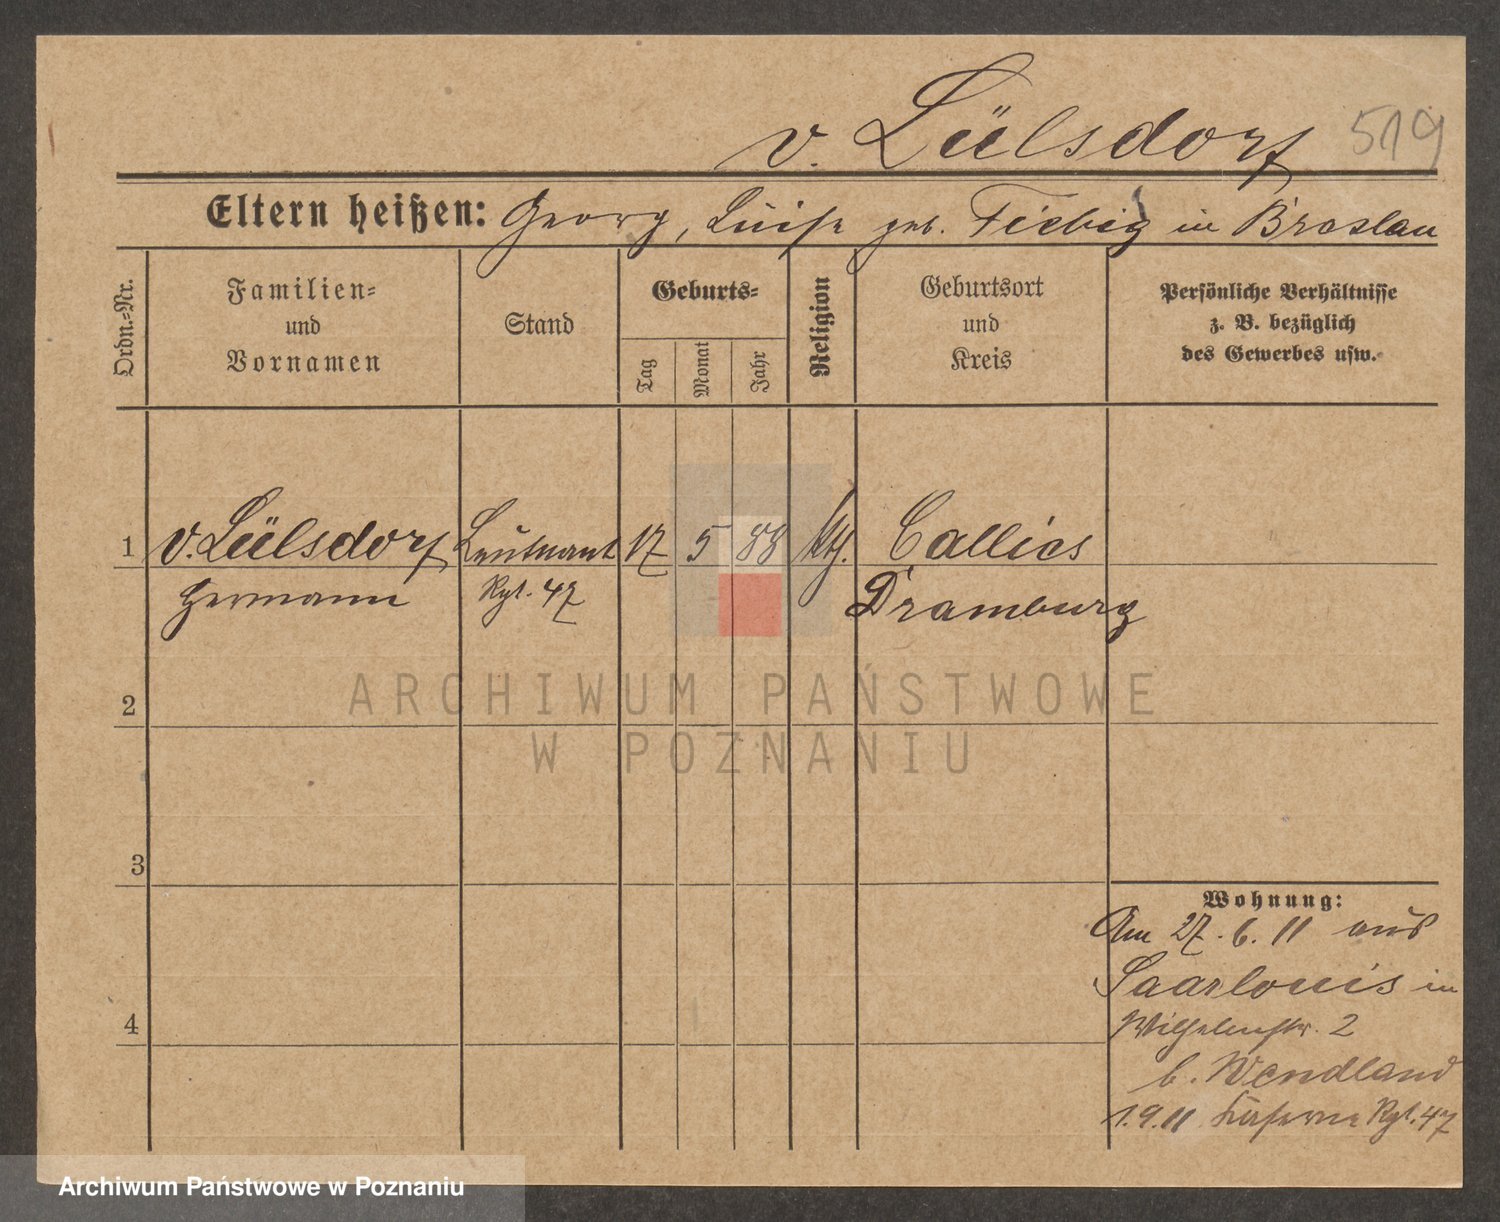 v. Lülsdorf 519
Eltern heißen: Georg, Luise geb. Fiebig in Breslau
Ordn.-Nr.
Familien-
und
Vornamen
Stand
Geburts-
Tag
Monat
Jahr
Religion
Geburtsort
und
Kreis
Persönliche Verhältnisse
z. B. bezüglich
des Gewerbes usw.
1 v. Lülsdorf Leutnant 17 5 88 kth. Callies
Hermann Rgt. 47 Dramburg
2
3
4
Wohnung:
Am 27.6.11 aus
Saarlouis in
Wilhelmstr. 2
b. Wendland
1.9.11 Kaserne Rgt. 47
ARCHIWUM PAŃSTWOWE
W POZNANIU
Archiwum Państwowe w Poznaniu